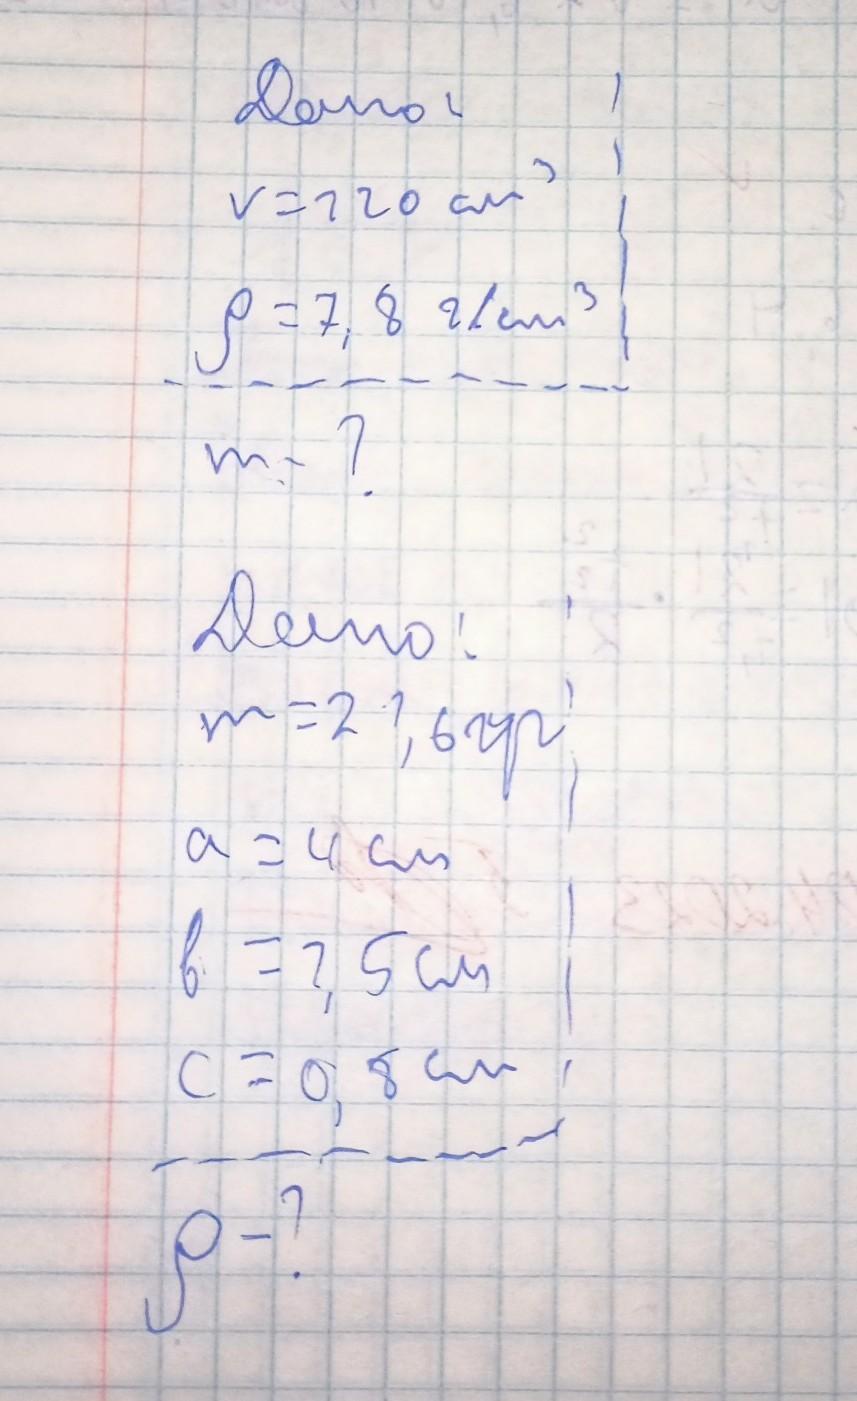 Дано:
v=120 см³
ρ=7,8 г/см³
m-?
Дано:
m=21,6 гр
a=4 см
b=1,5 см
c=0,8 см
ρ-?